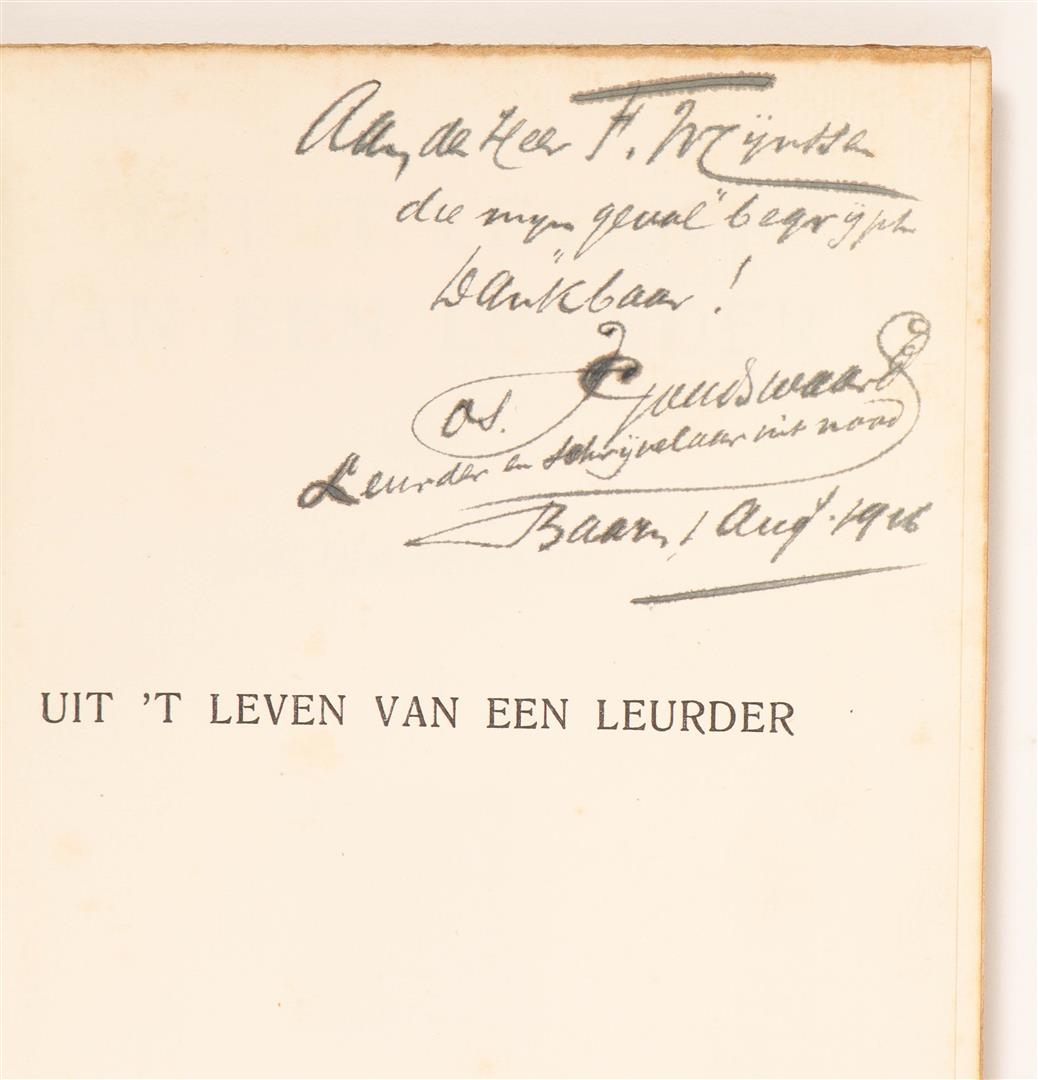 Aan de Heer F. Wijntssen
die mijn „geval" begrijpt
Dankbaar!
os. Goudswaard
Leurder en schrijvelaar uit nood
Baarn, 1 Aug. 1916
UIT 'T LEVEN VAN EEN LEURDER